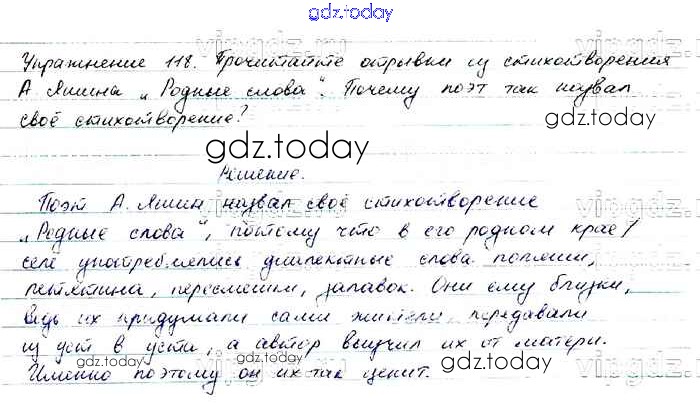 gdz.today
Упражнение 118. Прочитайте отрывки из стихотворения
А. Яшина „Родные слова“. Почему поэт так назвал
своё стихотворение?
gdz.today
gdz.today
Решение.
Поэт А. Яшин назвал своё стихотворение
„Родные слова“, потому что в его родном крае/
селе употреблялись диалектные слова:
пересмешки, залавок. Они ему близки,
ведь их придумали сами жители, передавали
из уст в уста, а автор выучил их от матери.
gdz.today
gdz.today
gdz.today
Именно поэтому он их так ценит.